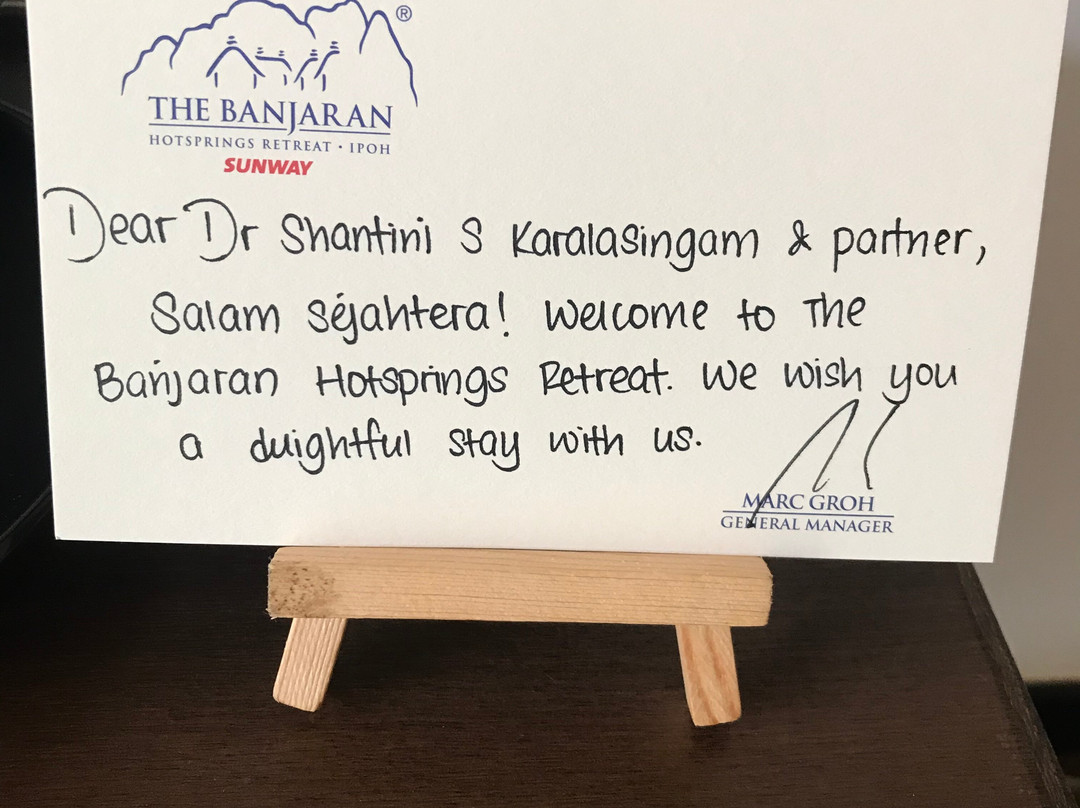 ®
THE BANJARAN
HOTSPRINGS RETREAT · IPOH
SUNWAY
Dear Dr Shantini S Karalasingam & partner,
Salam Sejahtera! Welcome to The
Banjaran Hotsprings Retreat. We wish you
a duightful stay with us.
MARC GROH
GENERAL MANAGER